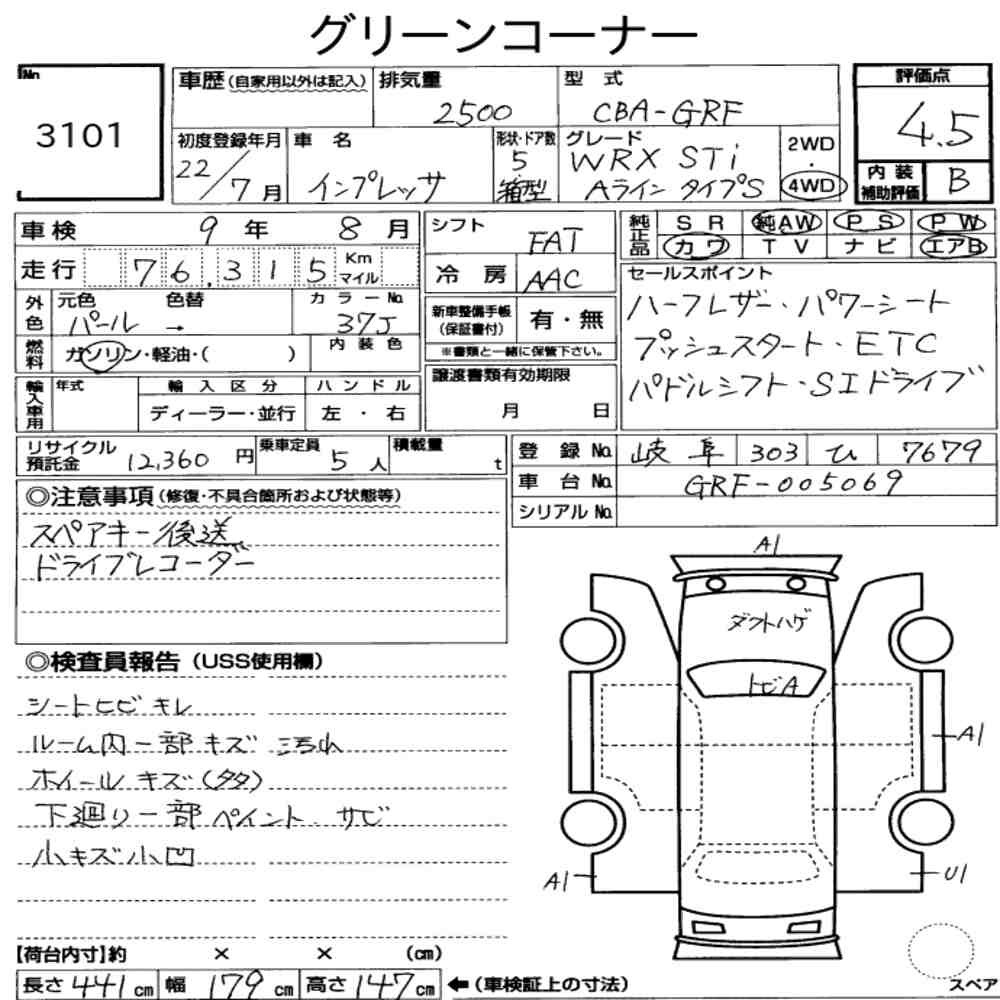 グリーンコーナー
No. 3101
車歴(自家用以外は記入) 排気量 2500 型式 CBA-GRF
評価点 4.5
内装補助評価 B
初度登録年月 22/7月 車名 インプレッサ 形状・ドア数 5 箱型 グレード WRX STi Aライン タイプS 2WD・4WD
車検 9年 8月 シフト FAT
純正品 SR 純AW PS PW
カワ TV ナビ エアB
走行 76,315 Km マイル 冷房 AAC
セールスポイント
ハーフレザー・パワーシート
プッシュスタート・ETC
パドルシフト・SIドライブ
外色 元色 パール 色替 → カラーNo. 37J
新車整備手帳(保証書付) 有・無
※書類と一緒に保管下さい。
燃料 ガソリン・軽油・( ) 内装色
譲渡書類有効期限 月 日
輸入車用 年式 輸入区分 ハンドル
ディーラー・並行 左・右
リサイクル預託金 12,360円 乗車定員 5人 積載量 t
登録No. 岐阜 303 ひ 7679
車台No. GRF-005069
シリアルNo.
◎注意事項(修復・不具合箇所および状態等)
スペアキー後送
ドライブレコーダー
◎検査員報告(USS使用欄)
シートヒビ キレ
ルーム内一部キズ 汚れ
ホイールキズ(多々)
下廻り一部ペイント サビ
小キズ小凹
A1
ダクトハゲ
トビA
A1
A1
U1
【荷台内寸】約 × × (cm)
長さ 441cm 幅 179cm 高さ 147cm ←(車検証上の寸法)
スペア